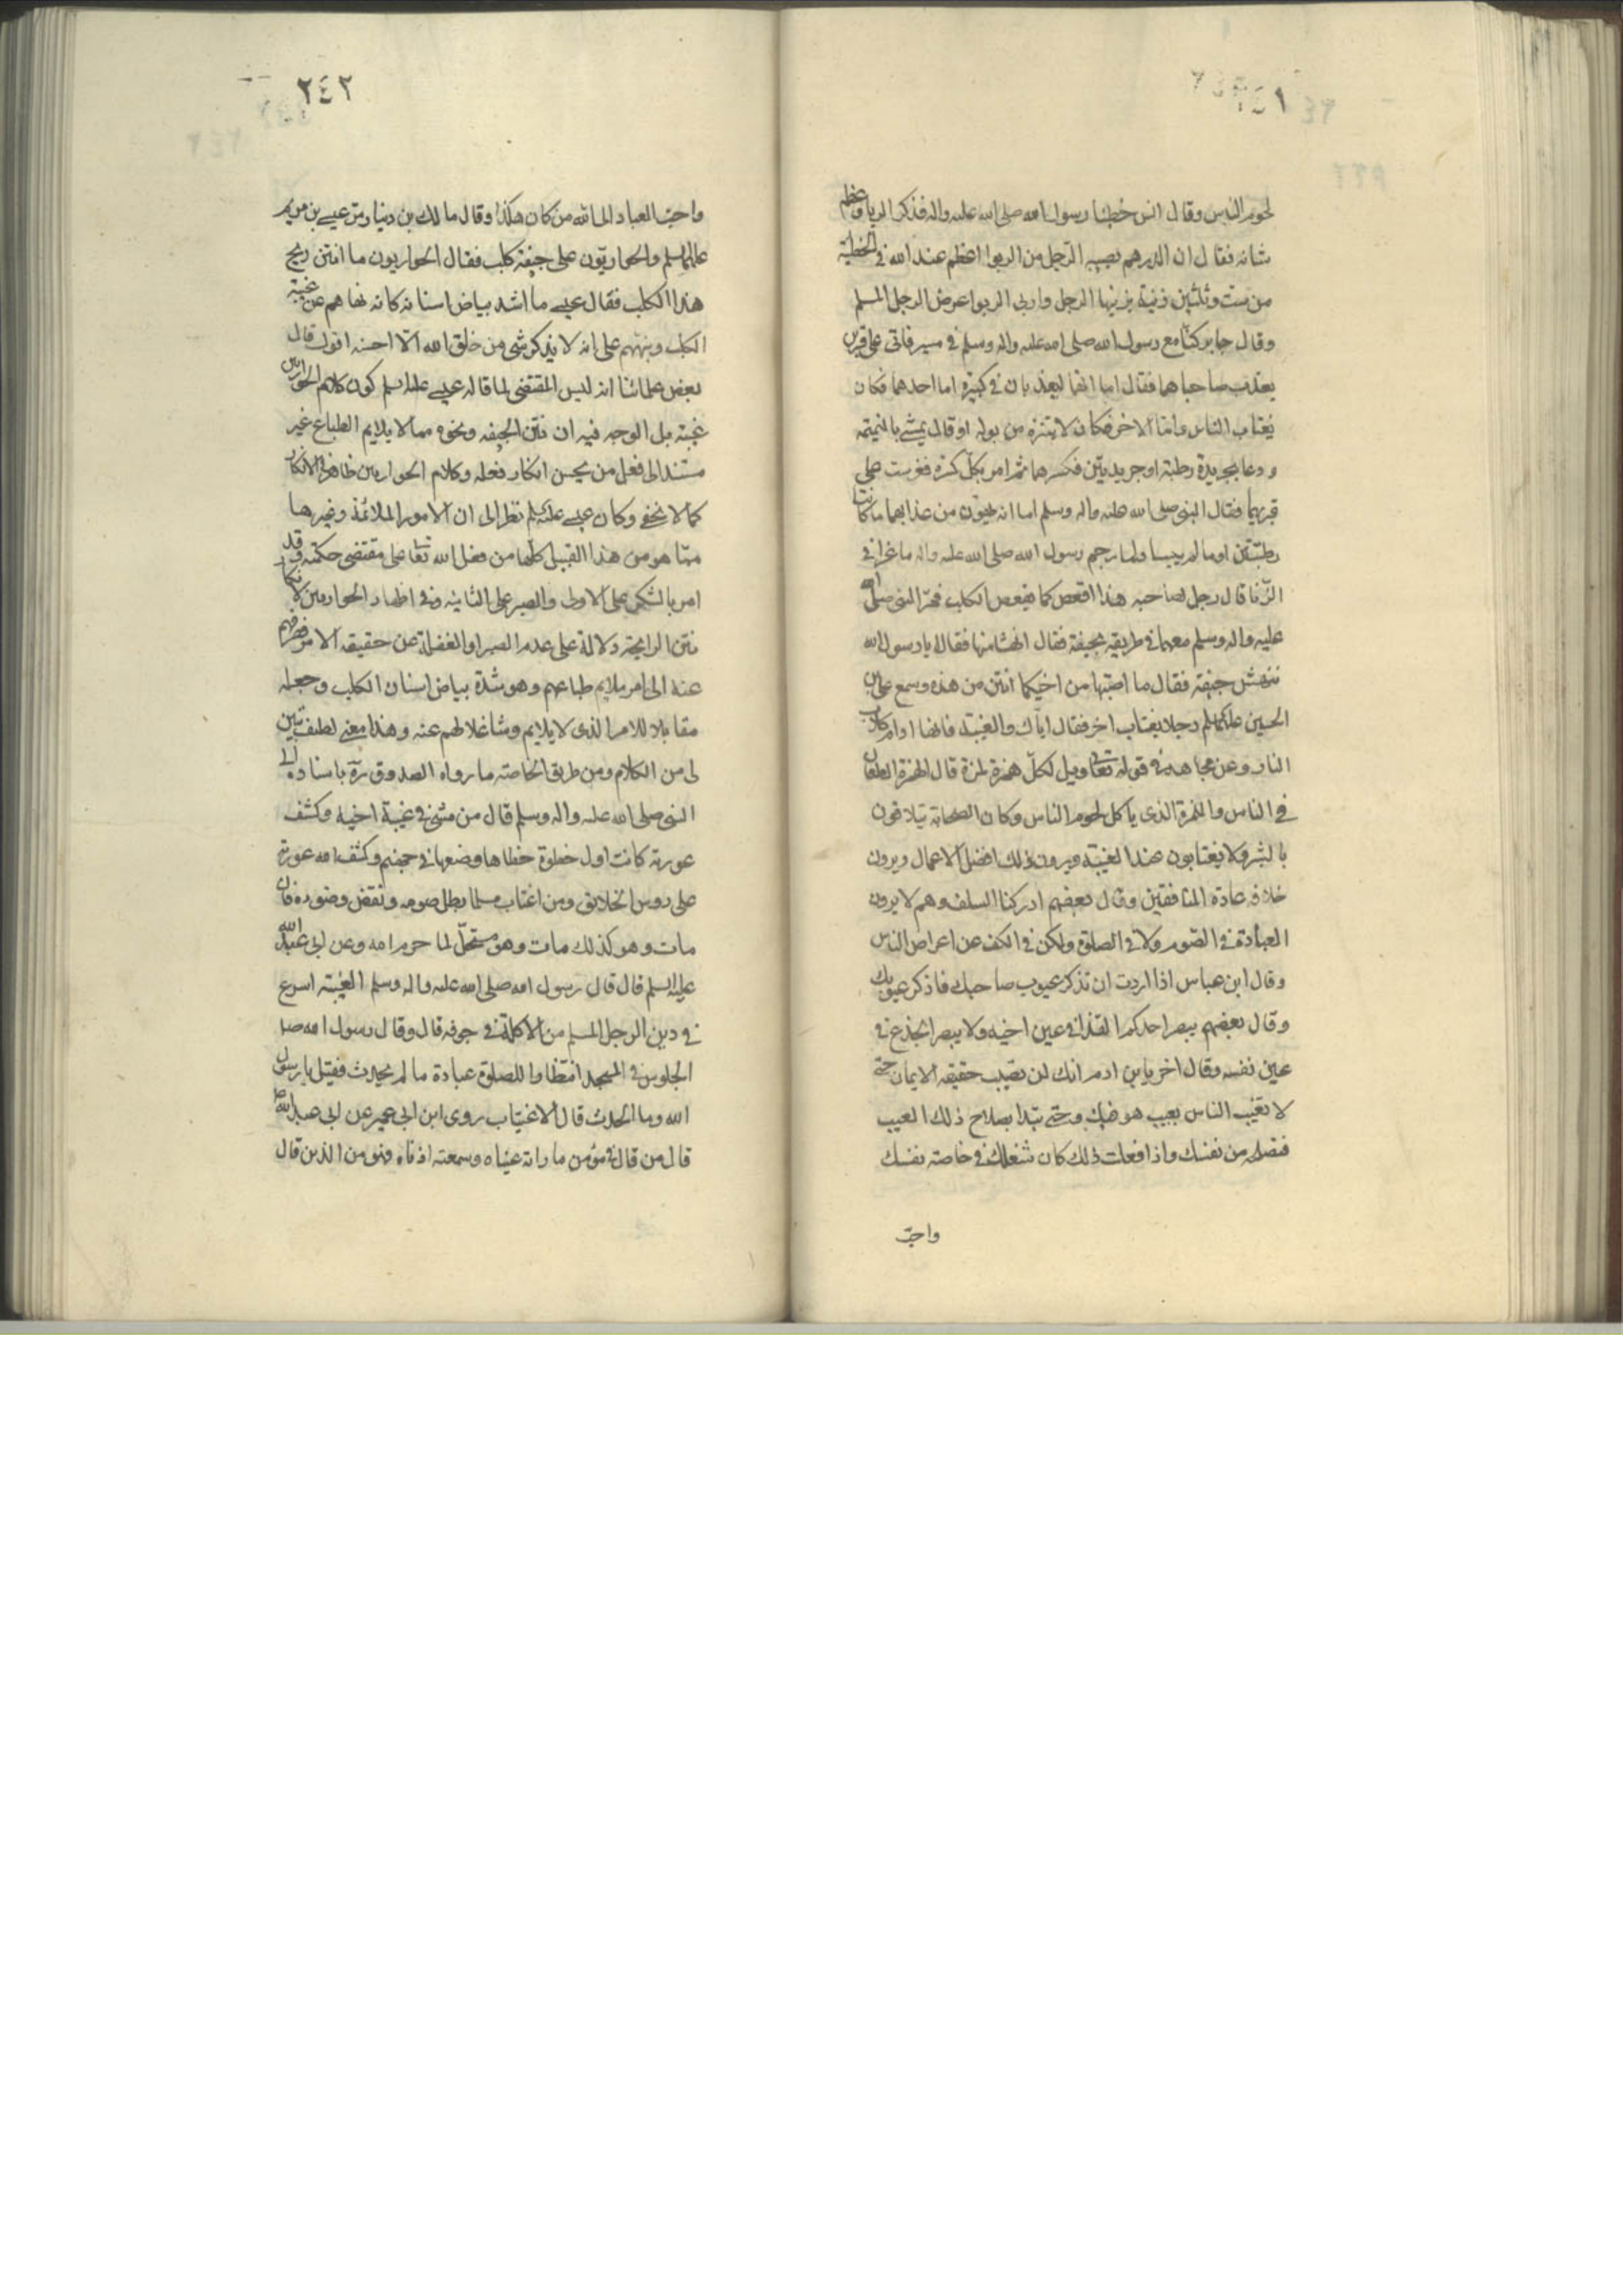 ٢٤١
لحوم الناس وقال انس خطبنا رسول الله صلى الله عليه واله فذكر الربا وعظم
شانه فقال ان الدرهم يصيبه الرجل من الربوا اعظم عند الله في الخطيئة
من ست وثلثين زنية يزنيها الرجل واربى الربوا عرض الرجل المسلم
وقال جابر كنا مع رسول الله صلى الله عليه واله وسلم في مسير فاتى على قبرين
يعذب صاحباهما فقال اما انهما ليعذبان في كبيرة اما احدهما فكان
يغتاب الناس واما الاخر فكان لا يتنزه من بوله او قال يمشي بالنميمه
ودعا بجريدة رطبة او جريدتين فكسرهما ثم امر بكل كسرة فغرست على
قبرهما فقال النبي صلى الله عليه واله وسلم اما انه يهون من عذابهما ما كانتا
رطبتين او ما لم ييبسا ولما رجم رسول الله صلى الله عليه واله ماعزا في
الزنا قال رجل لصاحبه هذا اقعص كما يقعص الكلب فمر النبي صلى الله
عليه واله وسلم معهما في طريقه بجيفة فقال انهشا منها فقالا يا رسول الله
ننهش جيفة فقال ما اصبتما من اخيكما انتن من هذه وسمع علي بن
الحسين عليهما السلم رجلا يغتاب اخر فقال اياك والغيبة فانها ادام كلاب
النار وعن مجاهد في قوله تعا ويل لكل همزة لمزة قال الهمزة الطعان
في الناس واللمزة الذي ياكل لحوم الناس وكان الصحابة يتلاقون
بالبشر ولا يغتابون عند الغيبة ويرون ذلك افضل الاعمال ويرون
خلافه عادة المنافقين وقال بعضهم ادركنا السلف وهم لا يرون
العبادة في الصوم ولا في الصلوة ولكن في الكف عن اعراض الناس
وقال ابن عباس اذا اردت ان تذكر عيوب صاحبك فاذكر عيوبك
وقال بعضهم يبصر احدكم القذى في عين اخيه ولا يبصر الجذع في
عين نفسه وقال اخر يابن ادم انك لن تصيب حقيقة الايمان حتى
لا تعيب الناس بعيب هو فيك وحتى تبدا بصلاح ذلك العيب
فتصلحه من نفسك واذا فعلت ذلك كان شغلك في خاصة نفسك
واحب
٢٤٢
واحب العباد الى الله من كان هكذا وقال مالك بن دينار مر عيسى بن مريم
عليهما السلم والحواريون على جيفة كلب فقال الحواريون ما انتن ريح
هذا الكلب فقال عيسى ما اشد بياض اسنانه كانه نهاهم عن غيبة
الكلب وينبههم على انه لا يذكر شي من خلق الله الا احسنه اقول قال
بعض علمائنا انه ليس المقتضي لما قاله عيسى عليه السلم كون كلام الحواريين
غيبة بل الوجه فيه ان نتن الجيفه ونحوه مما لا يلايم الطباع غير
مستند الى فعل من يحسن انكار فعله وكلام الحواريين ظاهر في الانكار
كما لا يخفى وكان عيسى عليه السلم نظر الى ان الامور الملائمة وغيرها
مما هو من هذا القبيل كلها من فعل الله تعا على مقتضى حكمته وقد
امر بالشكر على الاولى والصبر على الثانيه وفي اظهار الحواريين لانكار
نتن الرايحة دلالة على عدم الصبر او الغفلة عن حقيقة الامر فصرفهم
عنه الى امر ملايم طباعهم وهو شدة بياض اسنان الكلب وجعله
مقابلا للامر الذي لا يلايم وشاغلا لهم عنه وهذا معنى لطيف تبين
لي من الكلام ومن طريق الخاصة ما رواه الصدوق ره باسناده الى
النبي صلى الله عليه واله وسلم قال من مشى في غيبة اخيه وكشف
عورته كانت اول خطوة خطاها وضعها في جهنم وكشف الله عورته
على روس الخلايق ومن اغتاب مسلما بطل صومه ونقض وضوءه فان
مات وهو كذلك مات وهو مستحل لما حرم الله وعن ابي عبد الله
عليه السلم قال قال رسول الله صلى الله عليه واله وسلم الغيبة اسرع
في دين الرجل المسلم من الاكلة في جوفه قال وقال رسول الله صلى
الجلوس في المسجد انتظارا للصلوة عبادة ما لم يحدث فقيل يا رسول
الله وما الحدث قال الاغتياب روى ابن ابي عمير عن ابي عبد الله
قال من قال في مؤمن ما راته عيناه وسمعته اذناه فهو من الذين قال